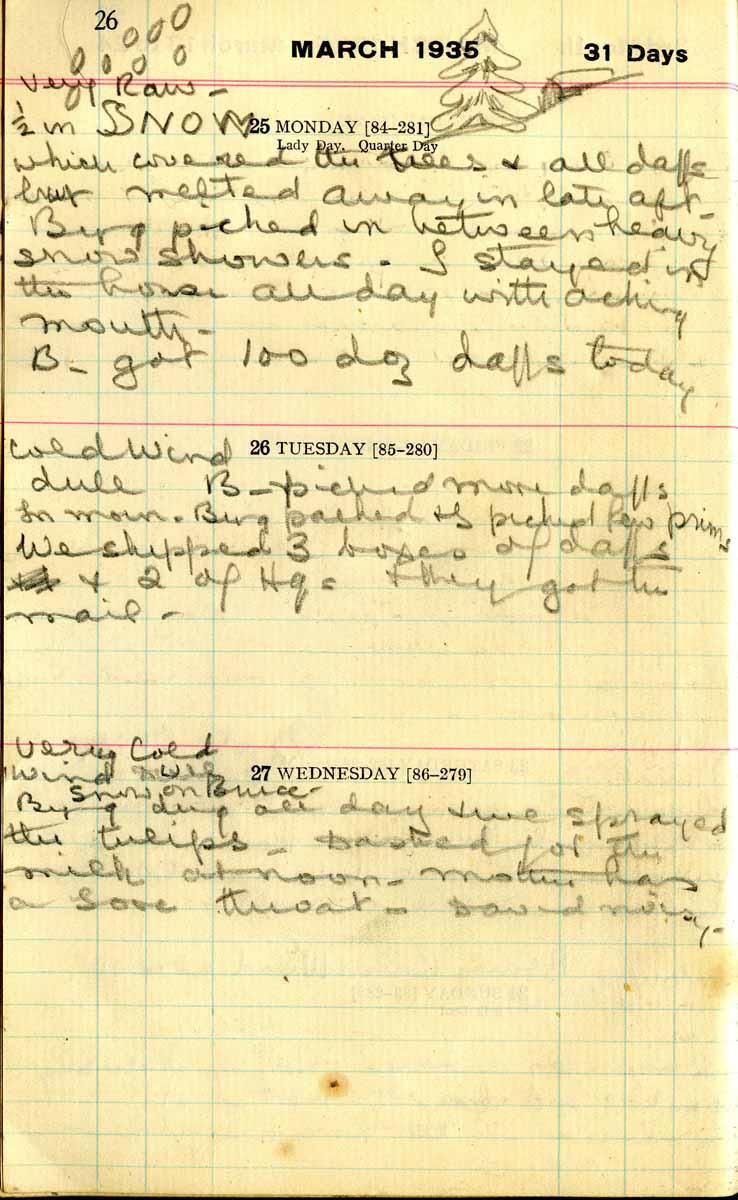 26
MARCH 1935
31 Days
Very Raw -
½ in SNOW
25 MONDAY [84–281]
Lady Day. Quarter Day
which covered the trees & all daffs
but melted away in late aft.
Berg picked in between heavy
snow showers - I stayed in
the house all day with aching
mouth -
B - got 100 doz daffs today
cold Wind
26 TUESDAY [85–280]
dull B - picked more daffs
In morn. Berg packed & I picked few prims
We shipped 3 boxes of daffs
& 2 of Hqs & they got the
mail -
very Cold
Wind
27 WEDNESDAY [86–279]
snow on Bruce -
Berg dug all day & we sprayed
the tulips - Dashed for the
milk at noon - Mother has
a sore throat - David noisy -